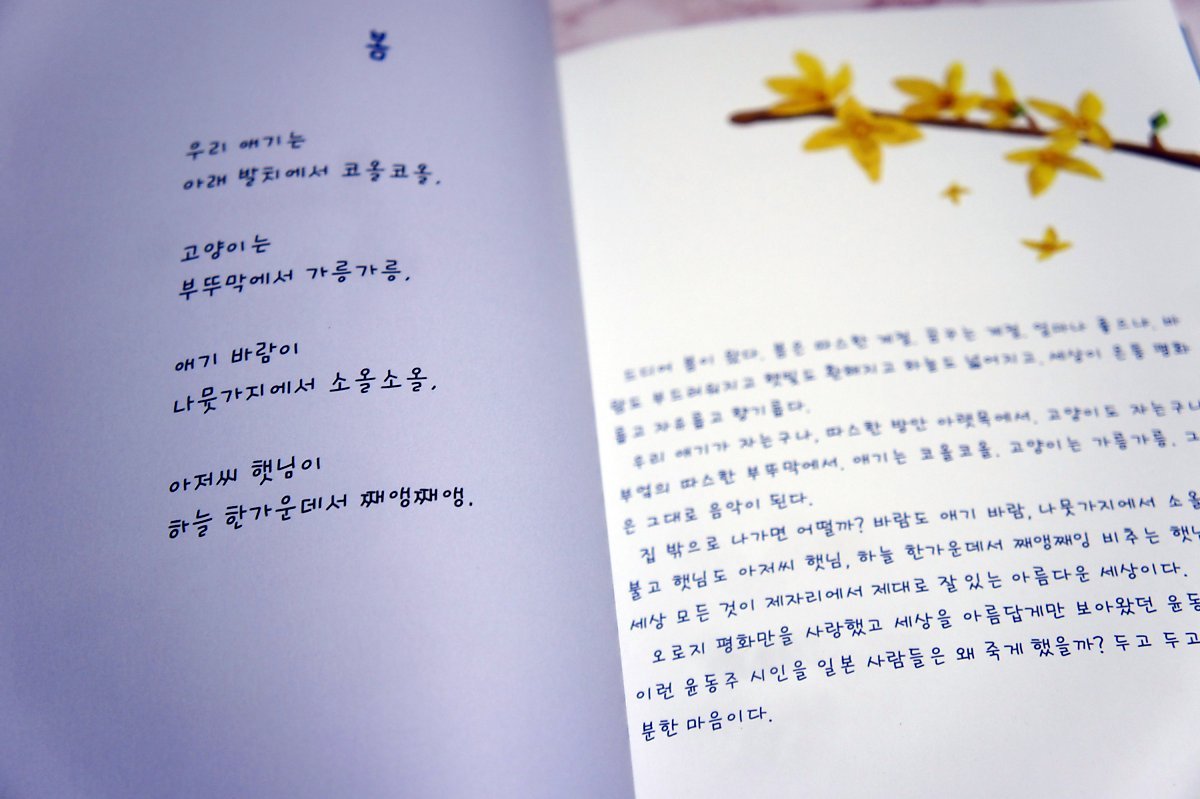 봄
우리 애기는
아래 발치에서 코올코올,
고양이는
부뚜막에서 가릉가릉,
애기 바람이
나뭇가지에서 소올소올,
아저씨 햇님이
하늘 한가운데서 째앵째앵.
드디어 봄이 왔다. 봄은 따스한 계절, 꿈꾸는 계절. 얼마나 좋으냐. 바
람도 부드러워지고 햇빛도 환해지고 하늘도 넓어지고, 세상이 온통 평화
롭고 자유롭고 향기롭다.
우리 애기가 자는구나, 따스한 방안 아랫목에서. 고양이도 자는구나
부엌의 따스한 부뚜막에서. 애기는 코올코올. 고양이는 가릉가릉. 그
은 그대로 음악이 된다.
집 밖으로 나가면 어떨까? 바람도 애기 바람, 나뭇가지에서 소올
불고 햇님도 아저씨 햇님, 하늘 한가운데서 째앵째잉 비추는 햇님
세상 모든 것이 제자리에서 제대로 잘 있는 아름다운 세상이다.
오로지 평화만을 사랑했고 세상을 아름답게만 보아왔던 윤동
이런 윤동주 시인을 일본 사람들은 왜 죽게 했을까? 두고 두고
분한 마음이다.